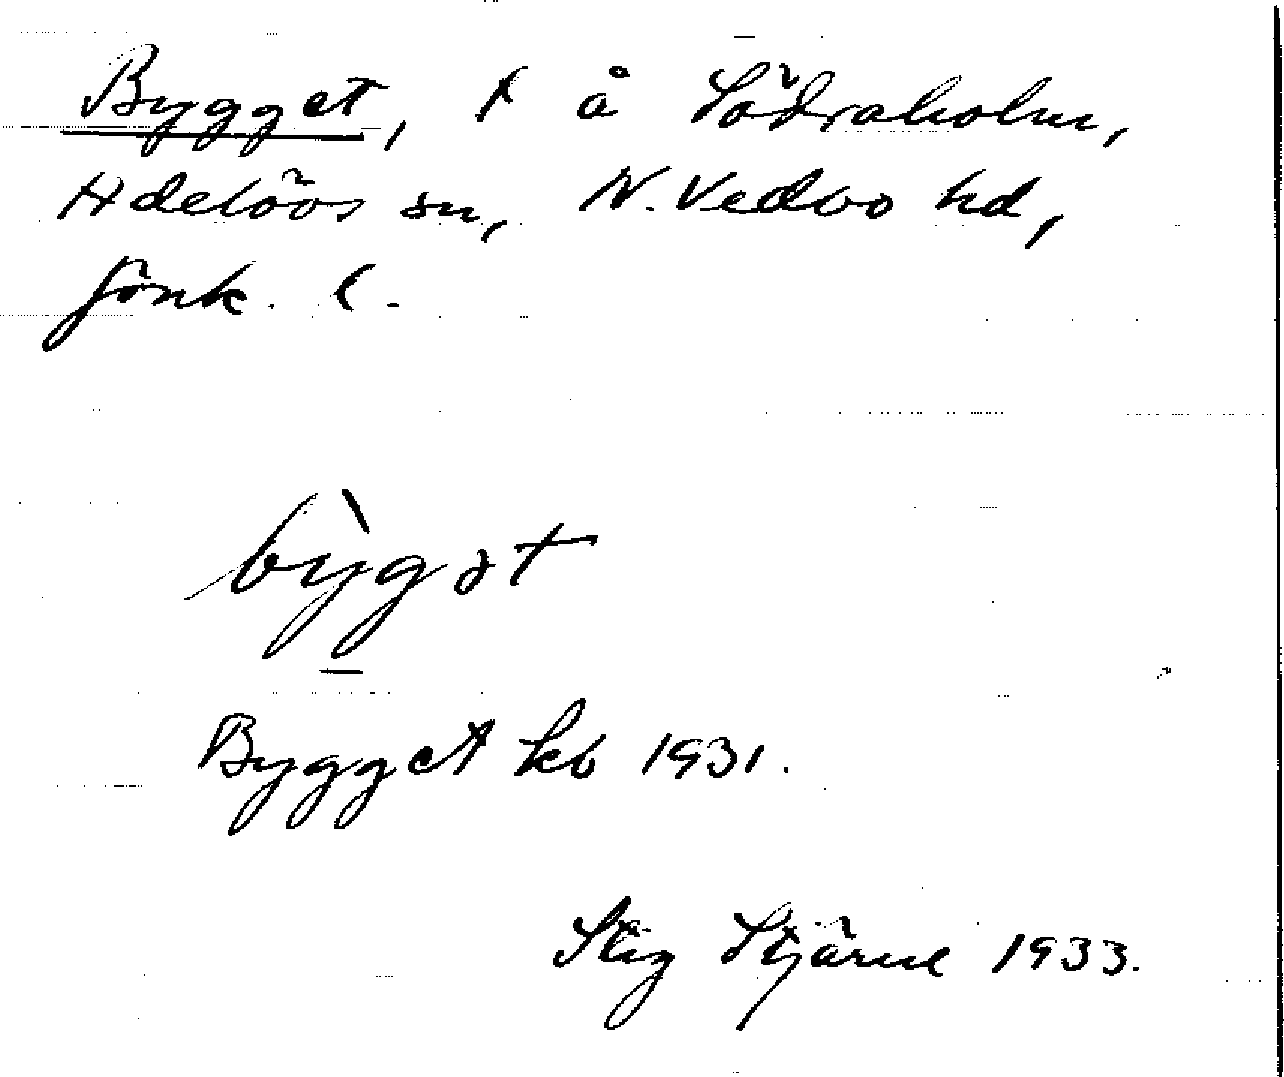 Bygget, t å Södraholm,
Adelövs sn, N. Vedbo hd,
Jönk. l.
bỳgət
Bygget kb 1931.
Stig Stjärne 1933.